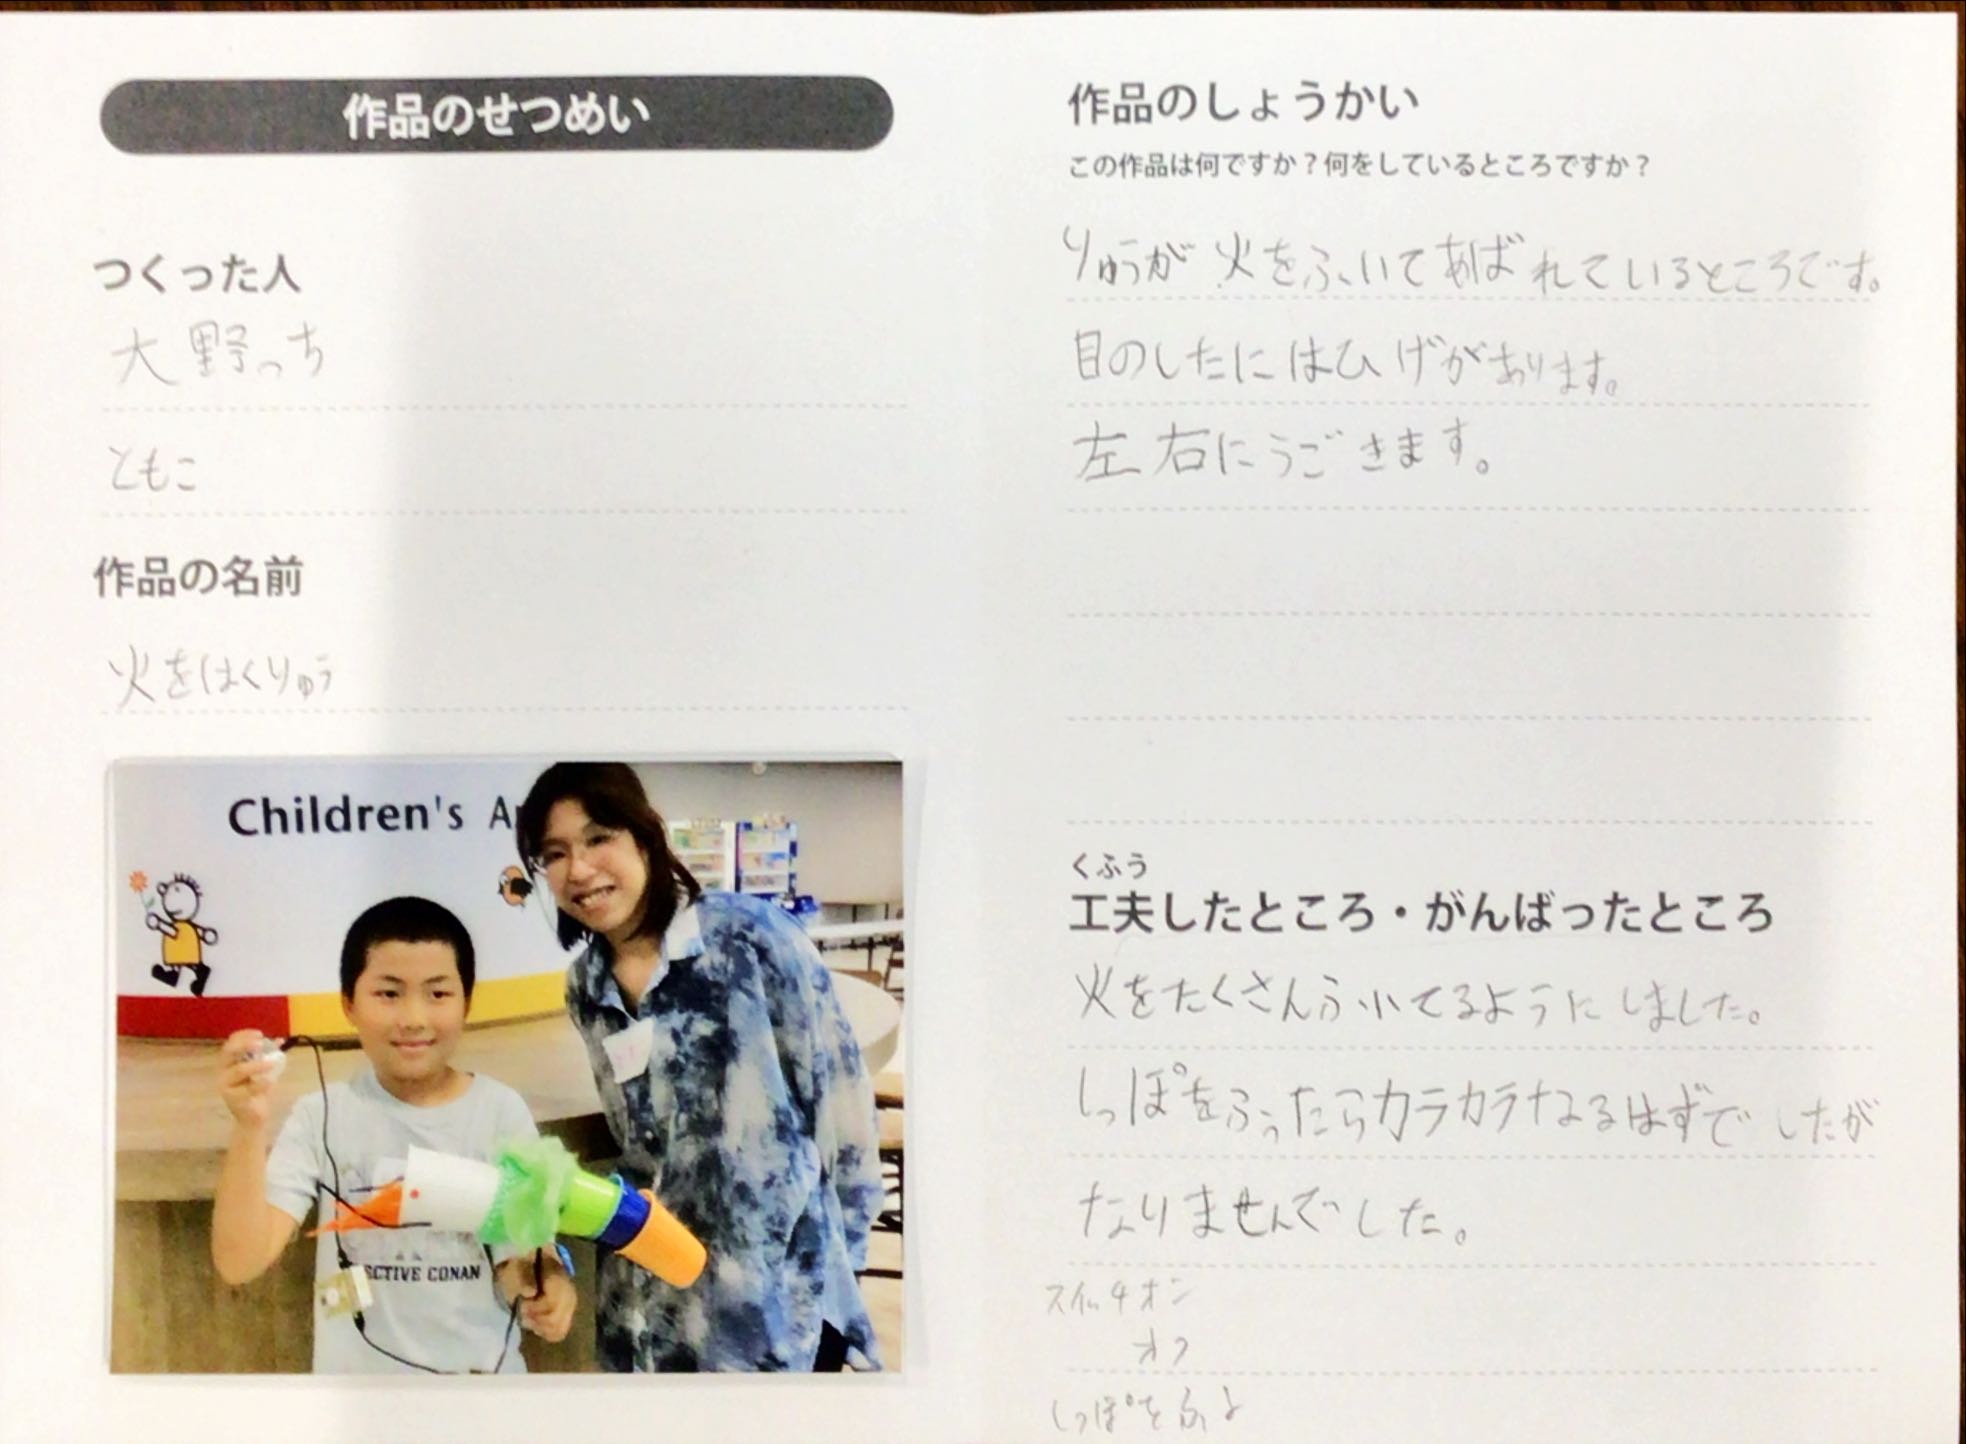 作品のせつめい
つくった人
大野っち
ともこ
作品の名前
火をはくりゅう
Children's A
ECTIVE CONAN
作品のしょうかい
この作品は何ですか？何をしているところですか？
りゅうが火をふいてあばれているところです。
目のしたにはひげがあります。
左右にうごきます。
くふう
工夫したところ・がんばったところ
火をたくさんふいてるようにしました。
しっぽをふったらカラカラなるはずでしたが
なりませんでした。
スイッチオン
オフ
しっぽをふ